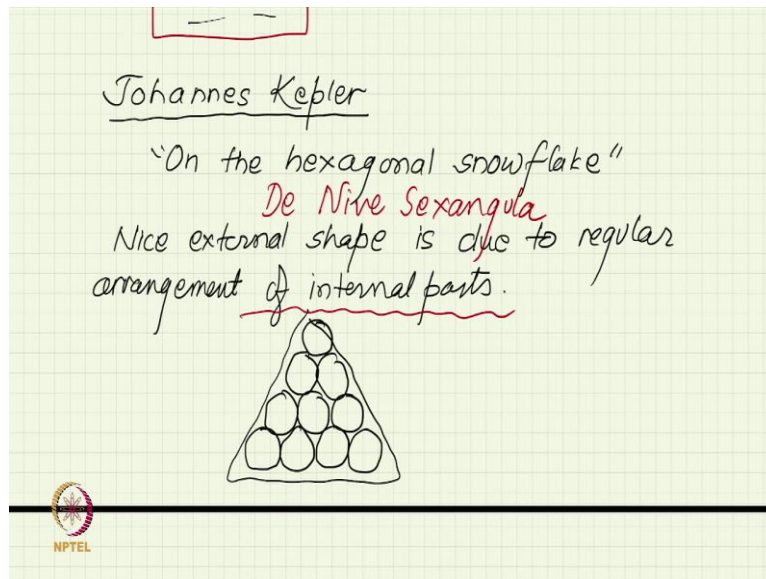 Johannes Kepler
"On the hexagonal snowflake"
De Nive Sexangula
Nice external shape is due to regular
arrangement of internal parts.
NPTEL